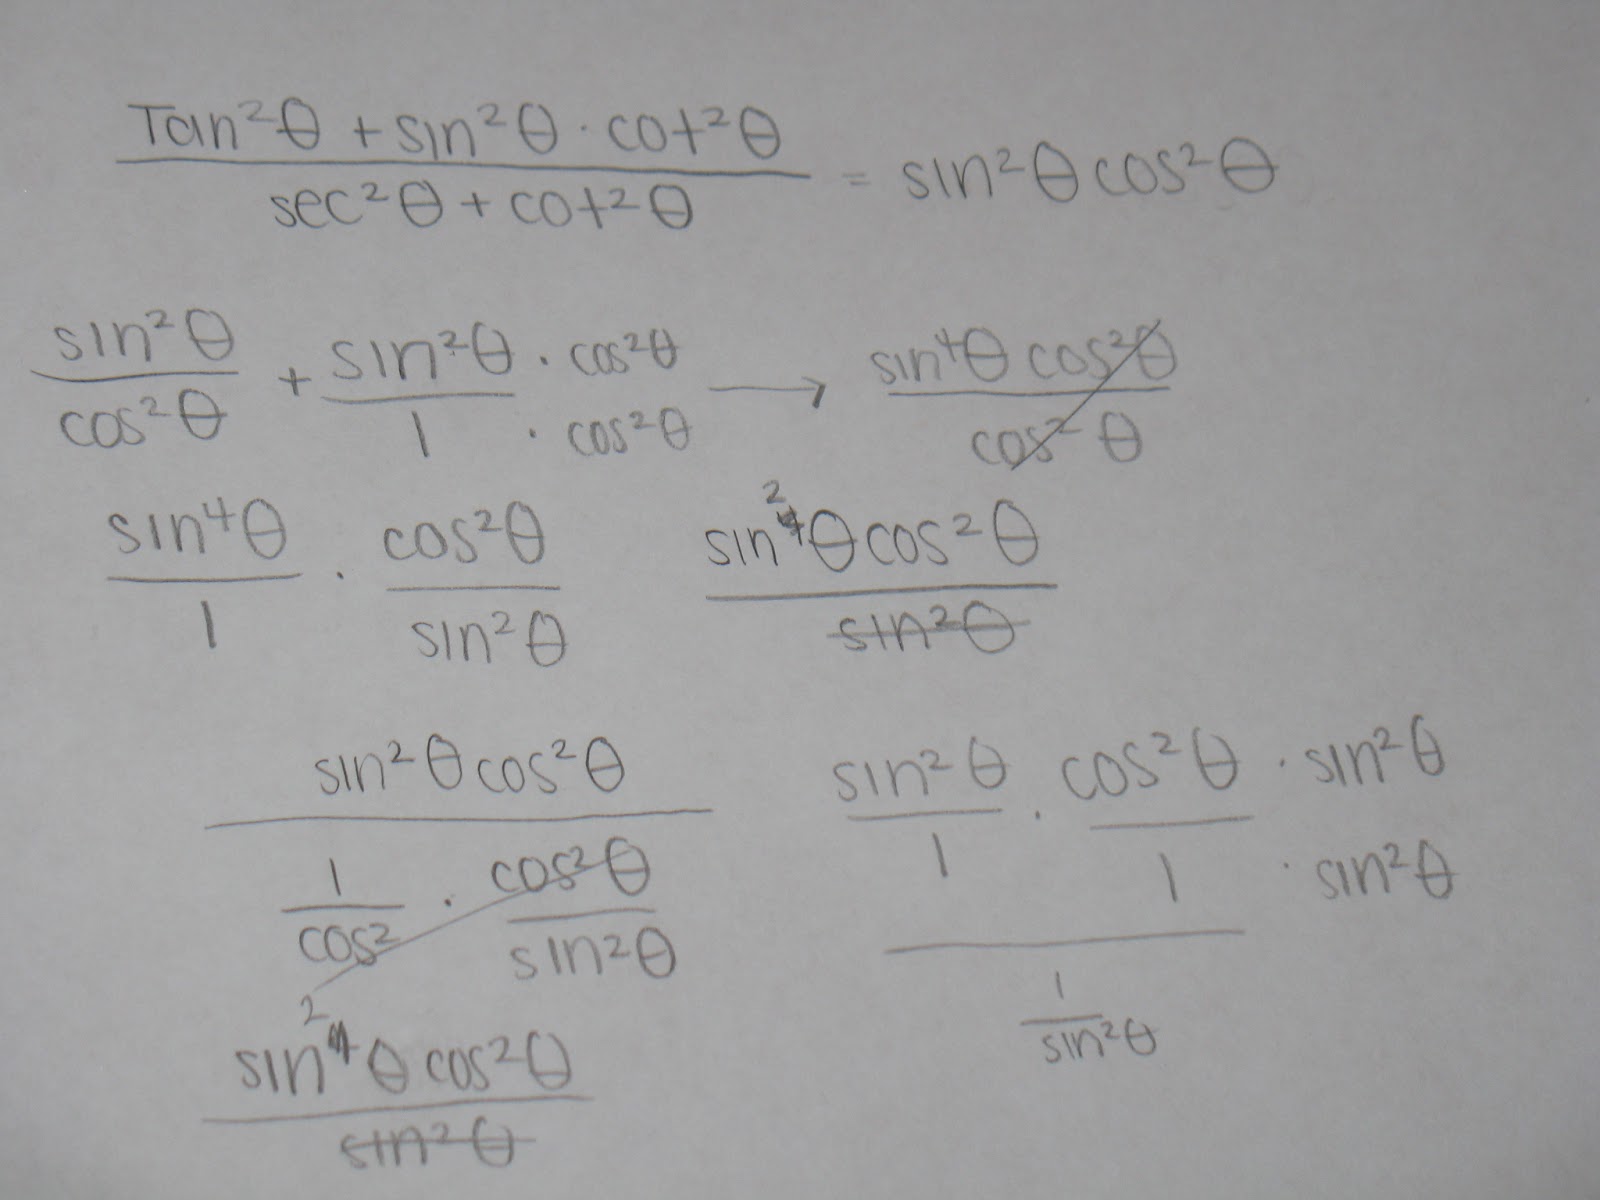 Tan²θ + sin²θ · cot²θ
sec²θ + cot²θ
= sin²θ cos²θ
sin²θ + sin²θ · cos²θ → sin⁴θ cos²θ
cos²θ 1 · cos²θ cos²θ
sin⁴θ · cos²θ sin²θ cos²θ
1 sin²θ sin²θ
sin²θ cos²θ
1 · cos²θ
cos² sin²θ
sin²θ · cos²θ · sin²θ
1 1 · sin²θ
1
sin²θ
sin²θ cos²θ
sin²θ